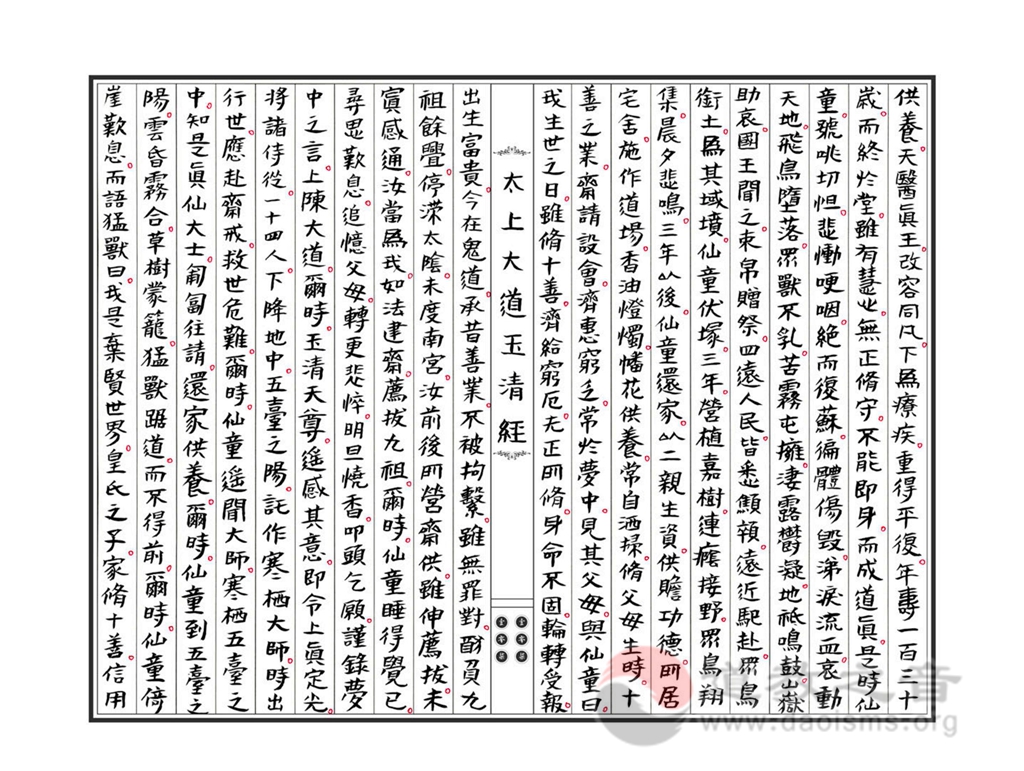 供養天醫眞王改容同凡下爲療疾重得平復年壽一百三十
歲而終於堂雖有慧心無正脩守不能即身而成道眞是時仙
童號咷切怛悲慟哽咽絕而復蘇徧體傷毀涕淚流血哀動
天地飛鳥墮落眾獸不乳苦霧屯擁淒露鬱凝地祇鳴鼓山嶽
助哀國王聞之束帛贈祭四遠人民皆悉顒顒遠近馳赴眾鳥
銜土爲其域墳仙童伏塚三年營植嘉樹連瘞接野眾鳥翔
集晨夕悲鳴三年以後仙童還家以二親生資供贍功德所居
宅舍施作道場香油燈燭幡花供養常自洒掃脩父母生時十
善之業齋請設會濟惠窮乏常於夢中見其父母與仙童曰
我生世之日雖脩十善濟給窮厄夫正所脩身命不固輪轉受報
太上大道玉清經
出生富貴今在鬼道承昔善業不被拘繫雖無罪對酧負九
祖餘釁停滯太陰未度南宮汝前後所營齋供雖伸薦拔未
寘感通汝當爲我如法建齋薦拔九祖爾時仙童睡得覺已
尋思歎息追憶父母轉更悲悴明旦燒香叩頭乞願謹錄夢
中之言上陳大道爾時玉清天尊遙感其意即令上眞定光
將諸侍從一十四人下降地中五臺之陽託作寒栖大師時出
行世應赴齋戒救世危難爾時仙童遥聞大師寒栖五臺之
中知是眞仙大士匍匐往請還家供養爾時仙童到五臺之
陽雲昏霧合草樹蒙籠猛獸踞道而不得前爾時仙童倚
崖歎息而語猛獸曰我是棄賢世界皇氏之子家脩十善信用
道教之音
www.daoisms.org